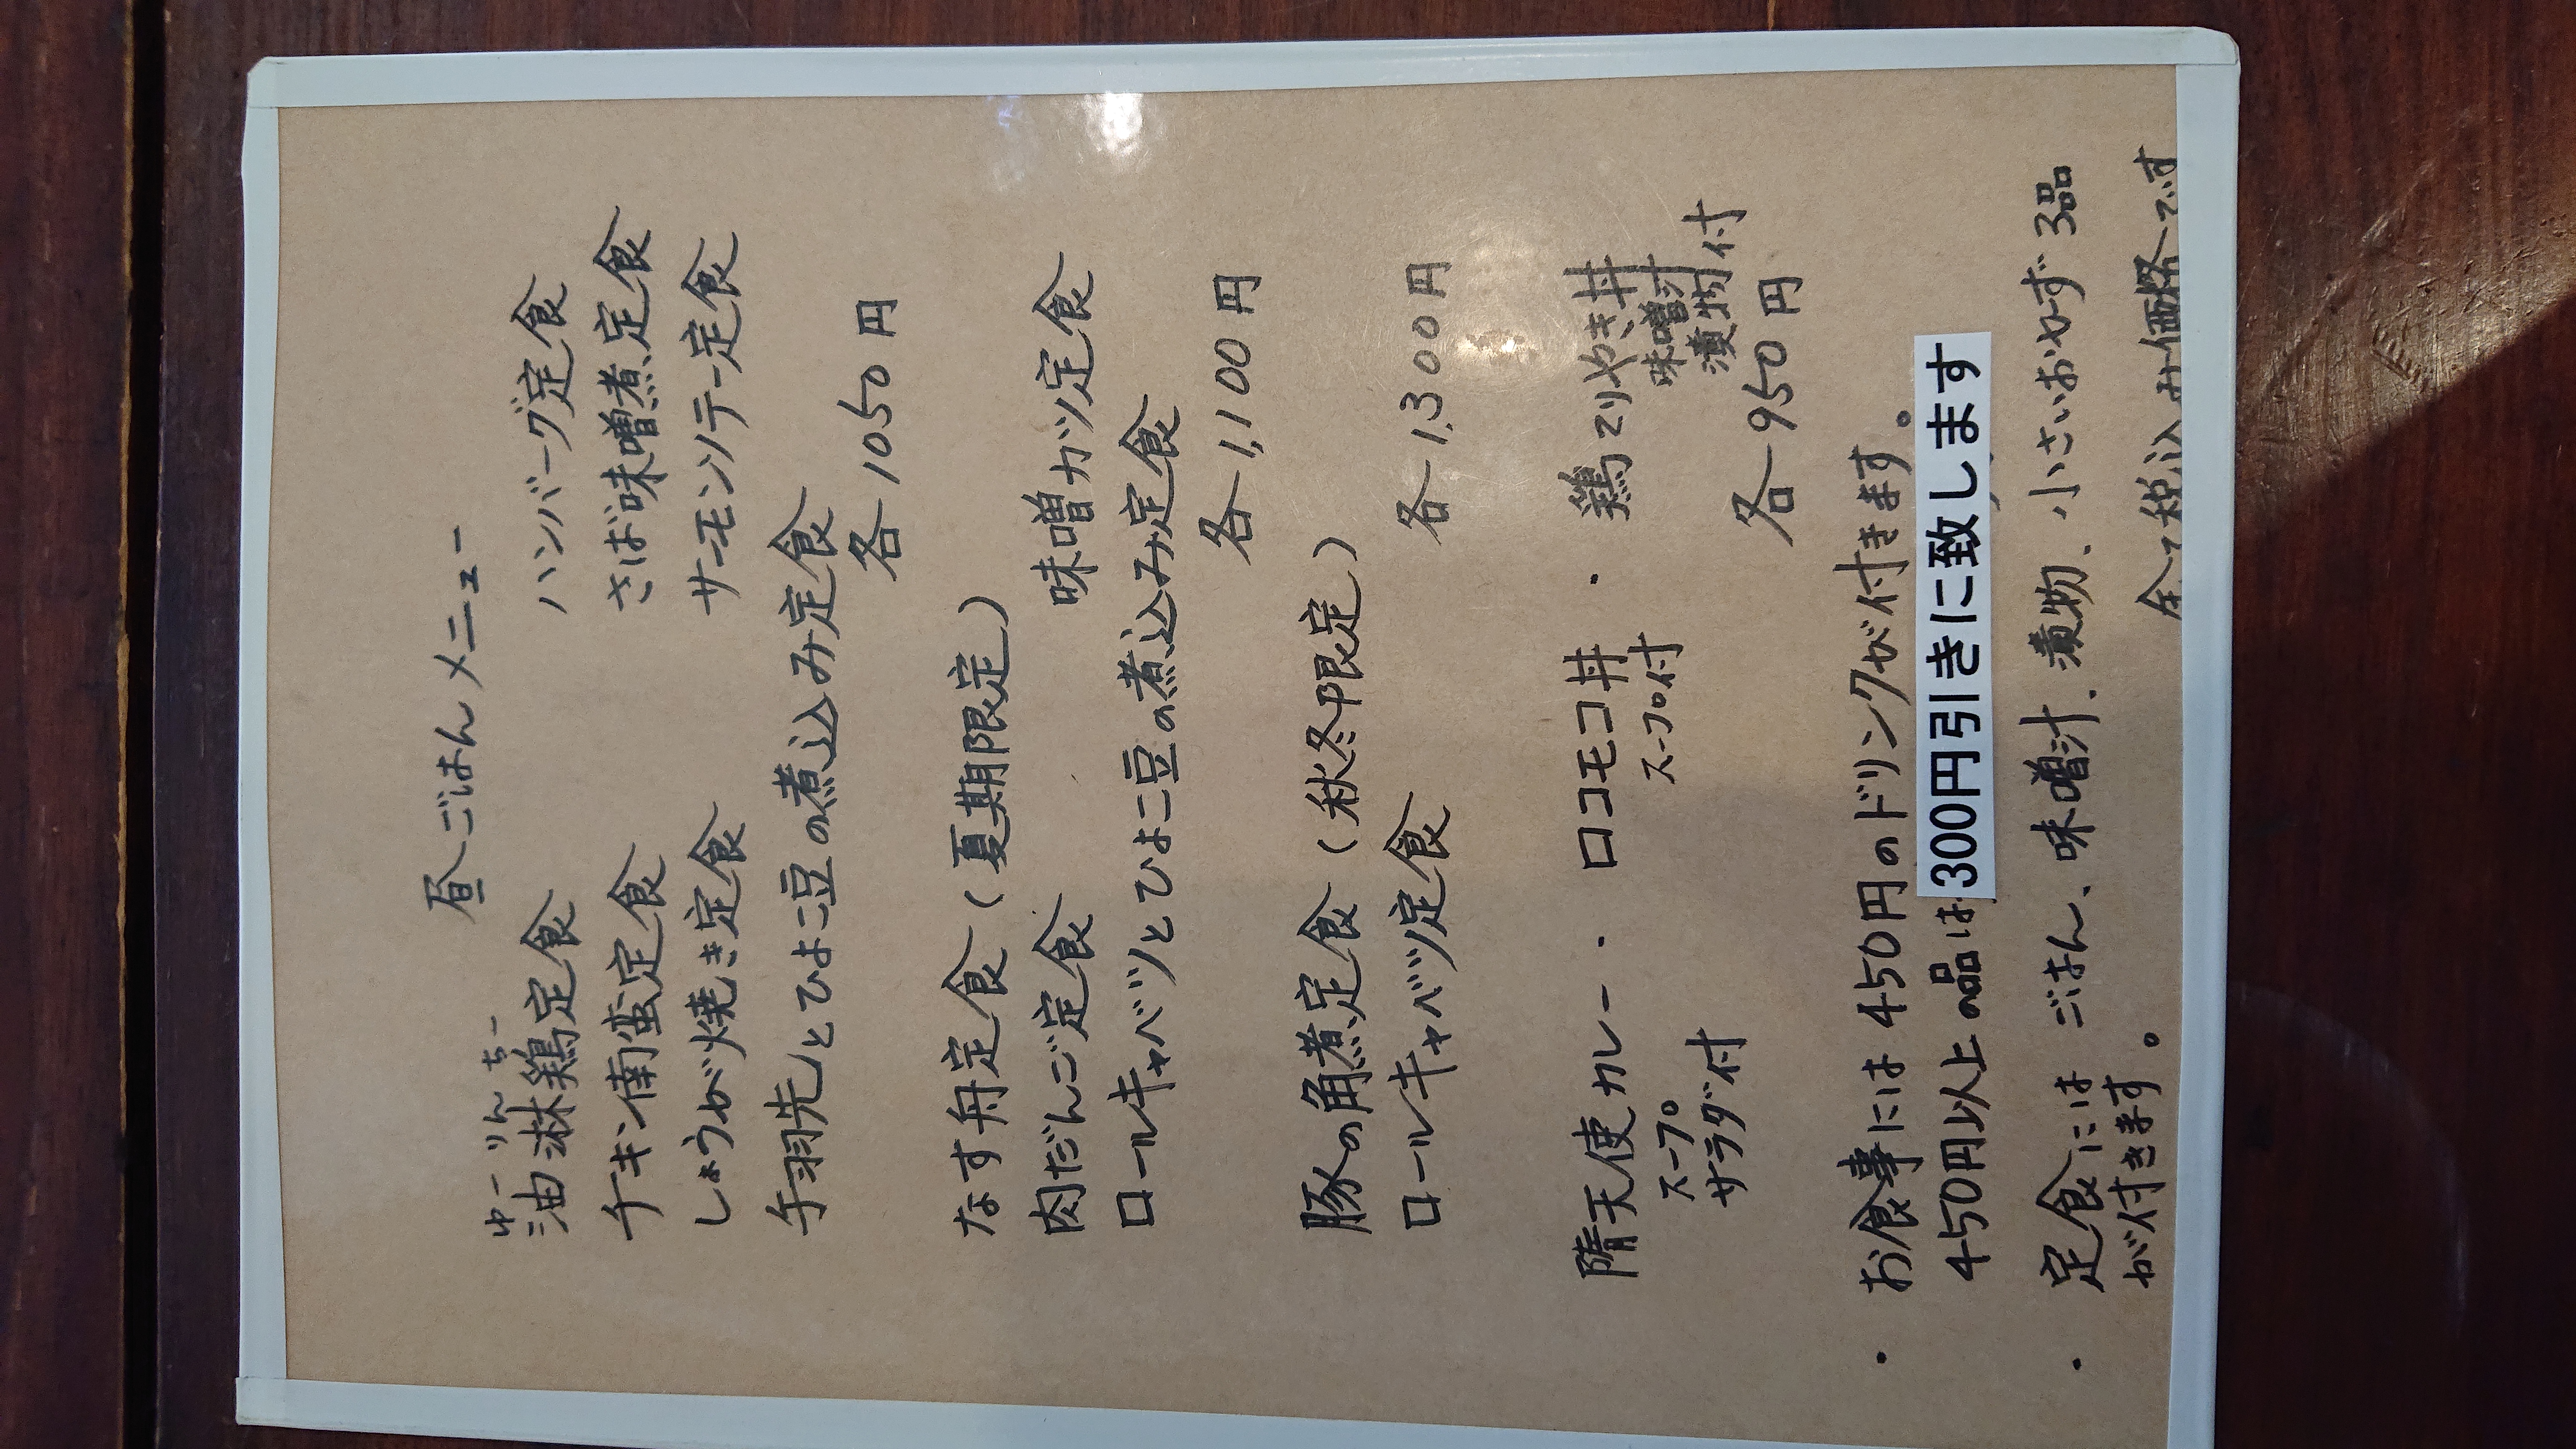 昼ごはんメニュー
ゆーりんちー
油淋鶏定食　ハンバーグ定食
チキン南蛮定食　さば味噌煮定食
しょうが焼き定食　サーモンソテー定食
手羽先とひよこ豆の煮込み定食
各1050円
なす舟定食（夏期限定）
肉だんご定食　味噌カツ定食
ロールキャベツとひよこ豆の煮込み定食
各1,100円
豚の角煮定食（秋冬限定）
ロールキャベツ定食　各1,300円
堕天使カレー・ロコモコ丼・鶏てりやき丼
スープ　スープ付　味噌汁
サラダ付　漬物付
各950円
・お食事には450円のドリンクが付きます。
450円以上の品は300円引きに致します
・定食には ごはん、味噌汁、漬物、小さいおかず3品
が付きます。
全て税込み価格です